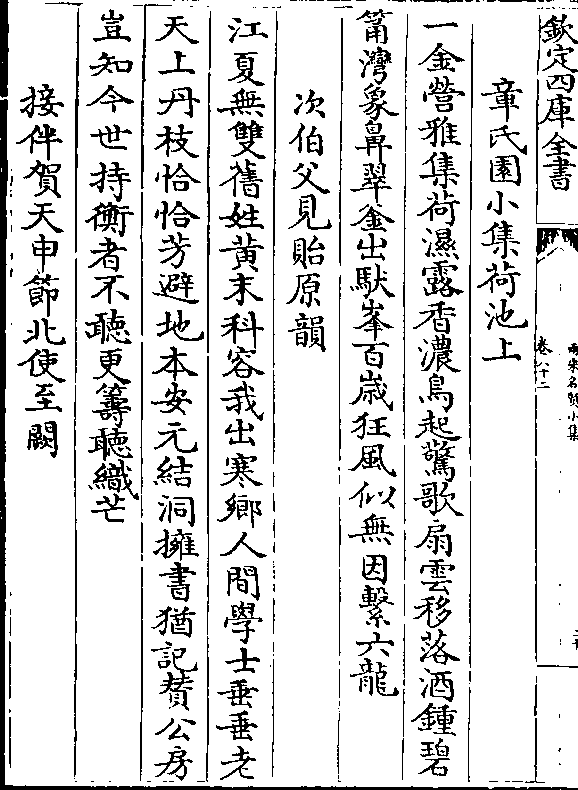 欽定四庫全書
兩宋名賢小集
卷八十二
章氏園小集荷池上
一金營雅集荷濕露香濃鳥起驚歌扇雲移落酒鍾碧
筩灣象鼻翠金出馱峯百歳狂風似無因繫六龍
次伯父見貽原韻
江夏無雙舊姓黃末科容我出寒鄉人間學士垂垂老
天上丹枝恰恰芳避地本安元結洞擁書猶記賛公房
豈知今世持衡者不聽更籌聽織芒
接伴賀天申節北使至闕